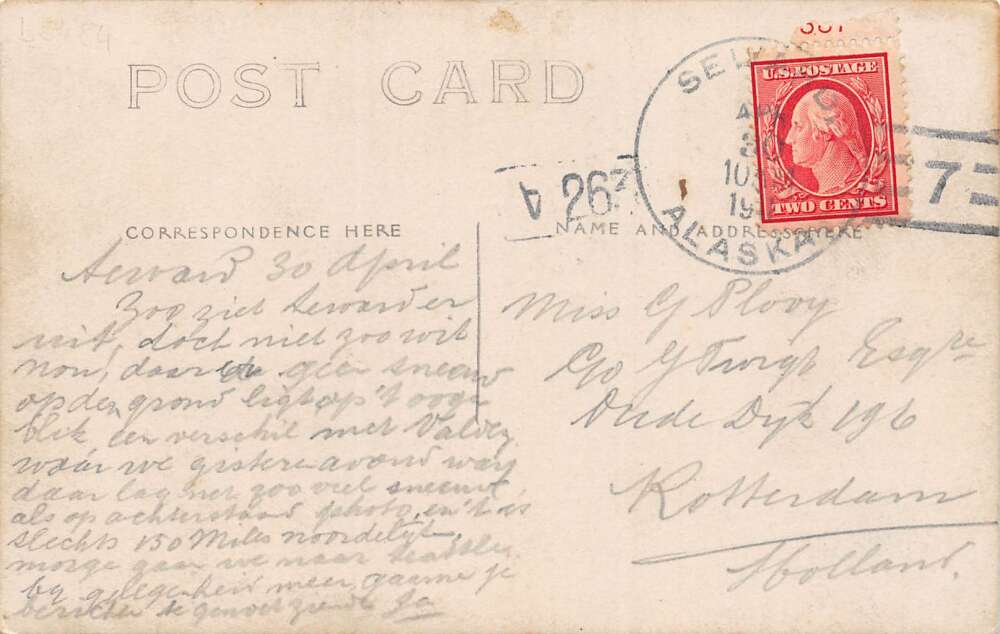 POST CARD
381
SEWARD
APR
30
10
19
ALASKA
U.S. POSTAGE
TWO CENTS
7
267
CORRESPONDENCE HERE
NAME AND ADDRESS HERE
Seward 30 April
Zoo ziet Seward er
uit, doch niet zoo wit
nou, daar er geen sneeuw
op den grond ligt op 't ooge
blik een verschil met Valdez
waar we gisteren avond waren
daar lag net zoo veel sneeuw
als op achterstaand photo, en 't is
slechts 150 Miles noordelijk,
morge gaan we naar Seattle,
by gelegenheid meer, gaarne je
berichten te genoet ziende
Miss G Plooy
C/o G Turgt Esqre
Oude Dyk 196
Rotterdam
Holland.